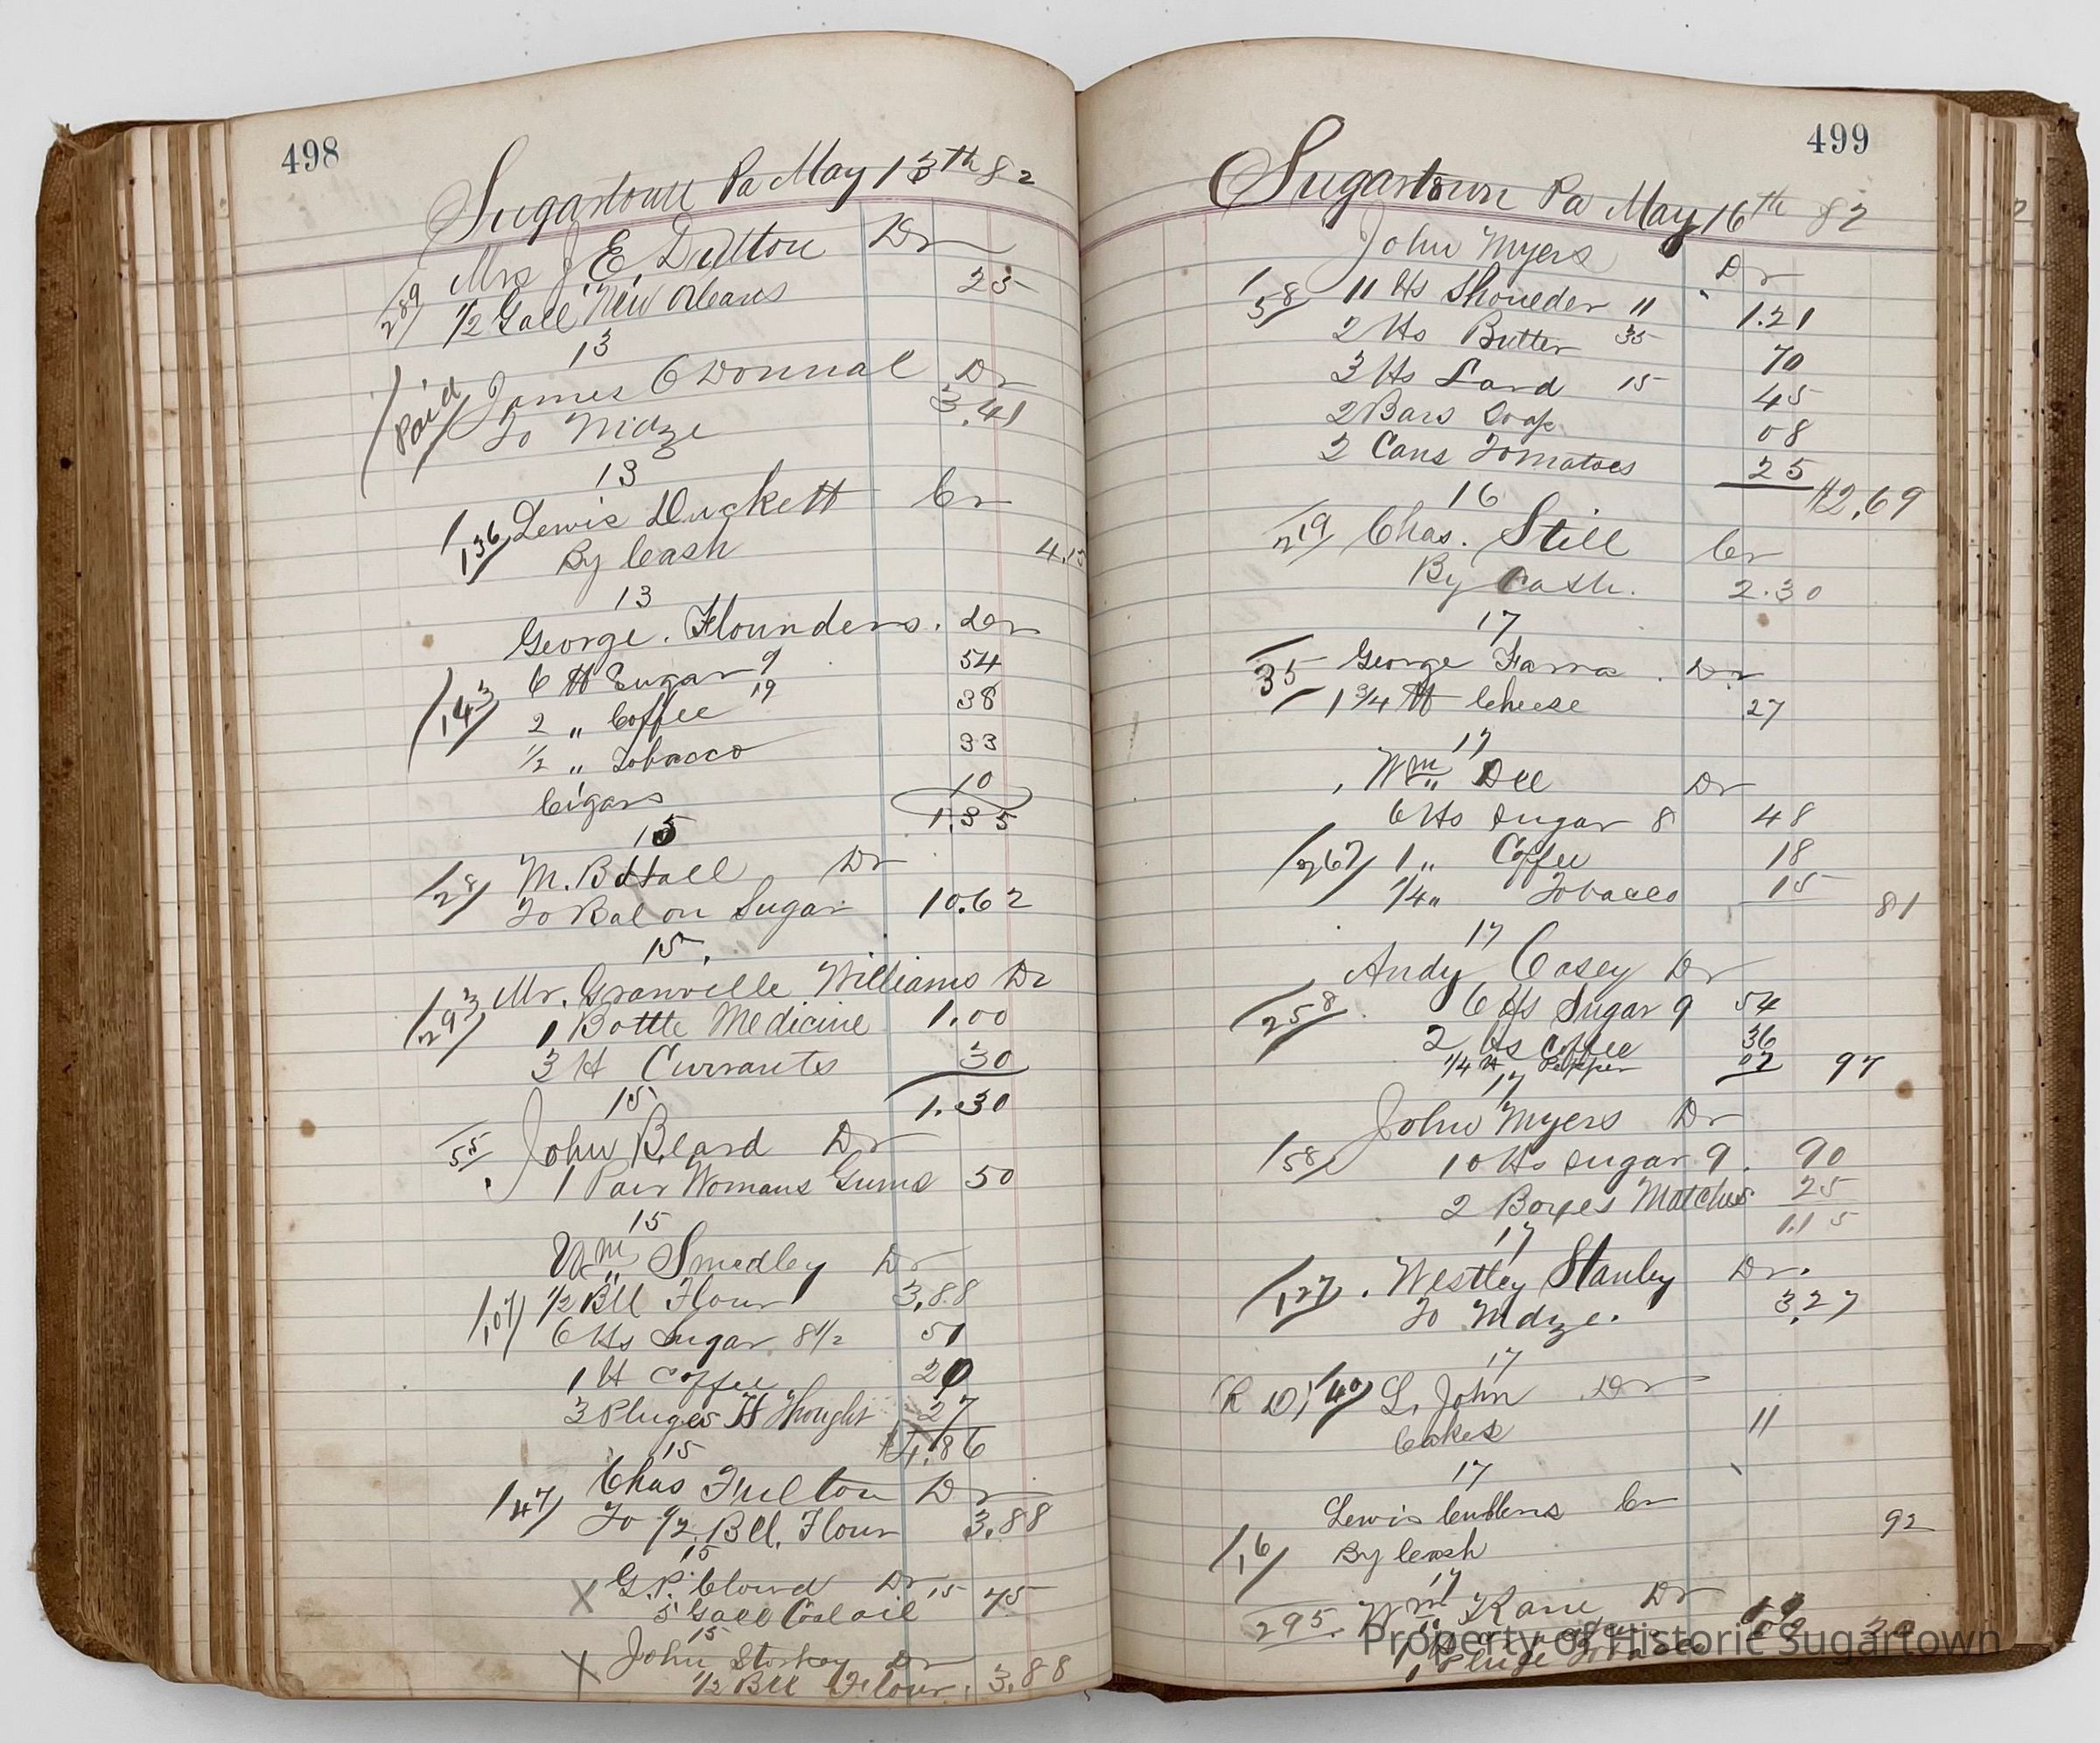 498
Sugartown Pa May 13th 82
Mrs J. E. Dutton Dr
289 1/2 Gall New Orleans 25
13
Paid James O Donnal Dr
To Mdze 3.41
13
136 Lewis Duckett Cr
By Cash 4.15
13
George. Flounders. Dr
6 lb Sugar 9 54
143 2 " Coffee 19 38
1/2 " Tobacco 33
Cigars 10
1.35
15
28 M. B Hall Dr
To Bal on Sugar 10.62
15.
293 Mr. Granville Williams Dr
1 Bottle Medicine 1.00
3 lb Currants 30
1.30
15
55 John Beard Dr
1 Pair Womans Gums 50
15
Wm Smedley Dr
107 1/2 Bll Flour 3.88
6 lbs Sugar 8 1/2 51
1 lb Coffee 20
3 Pluges H Thought 27
$4.86
15
147 Chas Fulton Dr
To 1/2 Bll. Flour 3.88
15
X G. P. Cloud Dr
5 Gall Coal oil 15 75
15
X John Storkey Dr
1/2 Bll Flour. 3.88
499
Sugartown Pa May 16th 82
John Myers Dr
58 11 lbs Shoulder 11 1.21
2 lbs Butter 35 70
3 lbs Lard 15 45
2 Bars Soap 08
2 Cans Tomatoes 25
$2.69
16
219 Chas. Still Cr
By Cash. 2.30
17
35 George Farra. Dr
1 3/4 lb Cheese 27
17
Wm Dell Dr
6 lbs Sugar 8 48
267 1 " Coffee 18
1/4 " Tobacco 15 81
17
Andy Casey Dr
258 6 lbs Sugar 9 54
2 lbs Coffee 36
1/4 lb Pepper 07 97
17
John Myers Dr
58 10 lbs Sugar 9. 90
2 Boxes Matches 25
1.15
17
127. Westley Stanley Dr.
To Mdze. 3.27
17
(R D) 40 L. John Dr
Cakes 11
17
Lewis Dr
16 By Cash 92
17
295. Wm Kane Dr
1 Pluge
Property of Historic Sugartown